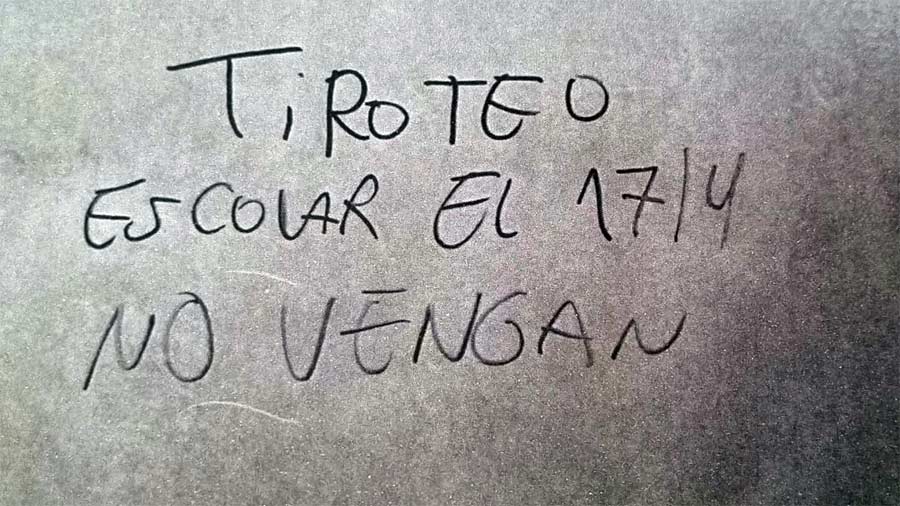 TiROTEO
ESCOLAR EL 17/4
NO VENGAN